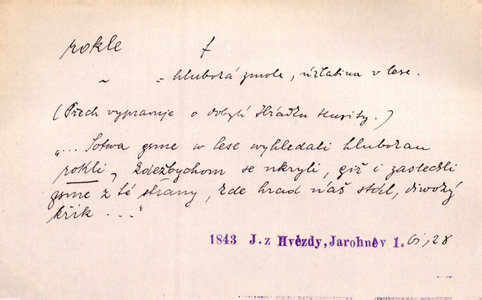 rokle f
~ = hluboká zmole, úžlabina v lese.
(Přech vypravuje o dobytí Hrádku Husity.)
"... Sotwa gsme w lese wyhledali hlubokau
rokli, kdežbychom se ukryli, giž i zaslechli
gsme z té strany, kde hrad náš stál, diwoký
křik ..."
1843 J. z Hvězdy, Jarohněv 1. 61, 28